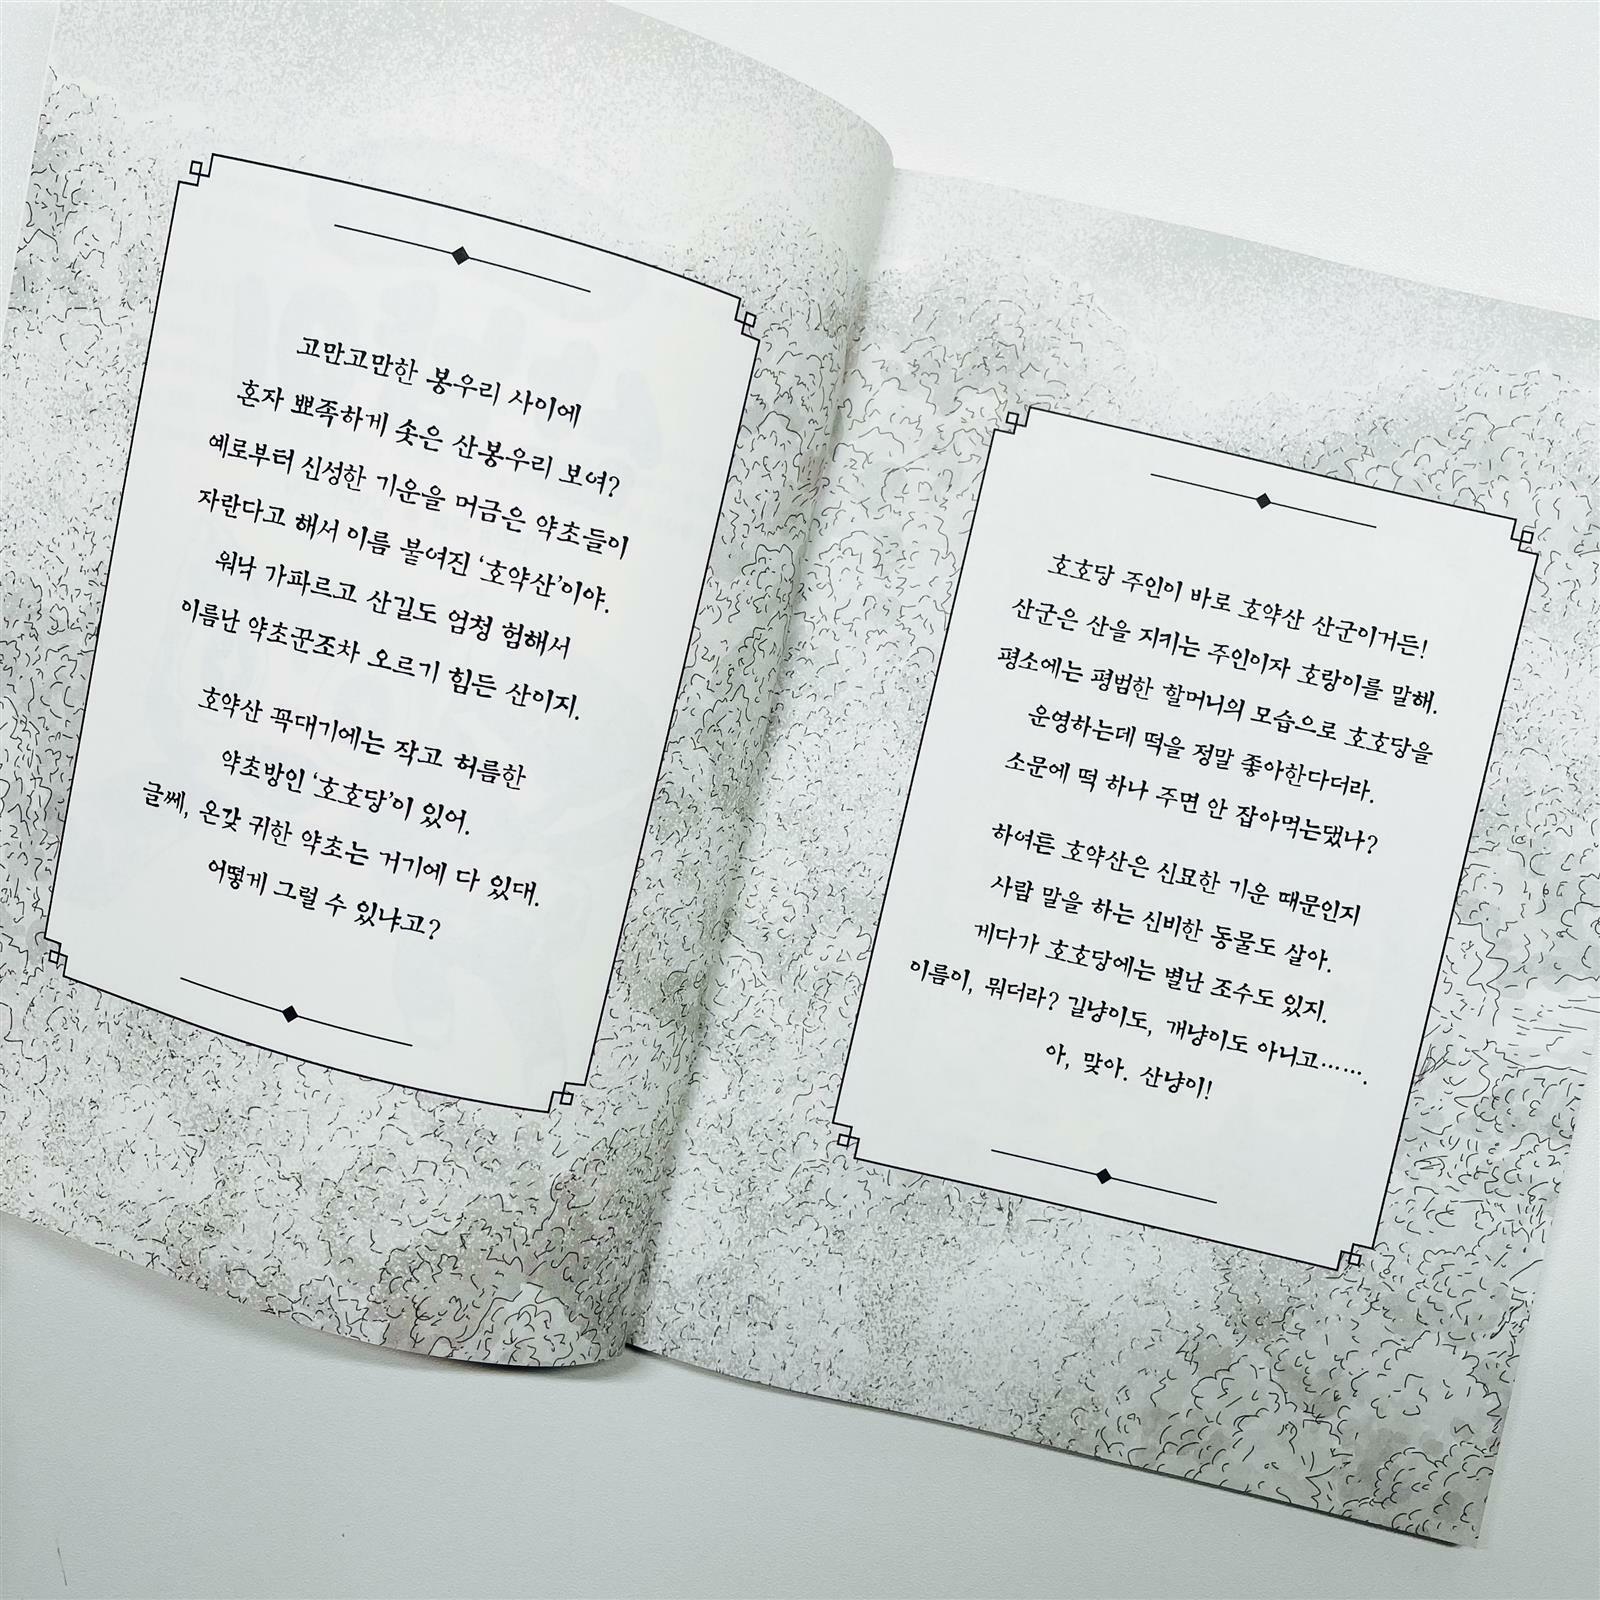 고만고만한 봉우리 사이에
혼자 뾰족하게 솟은 산봉우리 보여?
예로부터 신성한 기운을 머금은 약초들이
자란다고 해서 이름 붙여진 ‘호약산’이야.
워낙 가파르고 산길도 엄청 험해서
이름난 약초꾼조차 오르기 힘든 산이지.
호약산 꼭대기에는 작고 허름한
약초방인 ‘호호당’이 있어.
글쎄, 온갖 귀한 약초는 거기에 다 있대.
어떻게 그럴 수 있냐고?
호호당 주인이 바로 호약산 산군이거든!
산군은 산을 지키는 주인이자 호랑이를 말해.
평소에는 평범한 할머니의 모습으로 호호당을
운영하는데 떡을 정말 좋아한다더라.
소문에 떡 하나 주면 안 잡아먹는댔나?
하여튼 호약산은 신묘한 기운 때문인지
사람 말을 하는 신비한 동물도 살아.
게다가 호호당에는 별난 조수도 있지.
이름이, 뭐더라? 길냥이도, 개냥이도 아니고…….
아, 맞아. 산냥이!